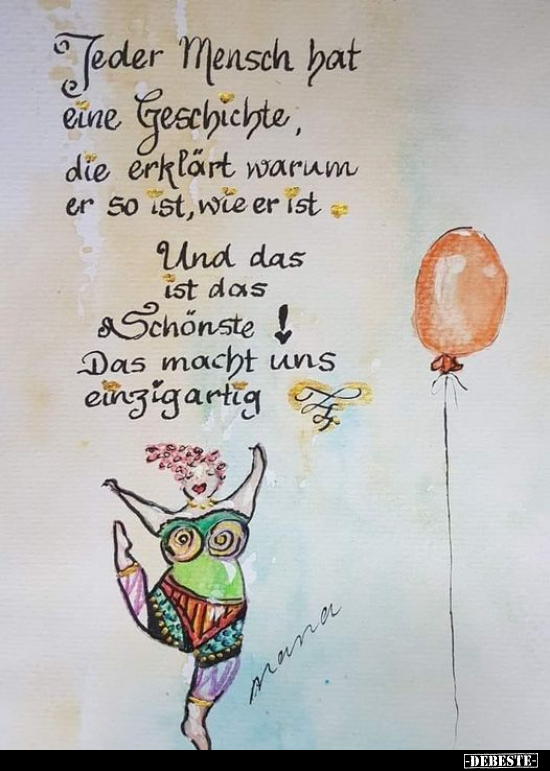 Jeder Mensch hat
eine Geschichte,
die erklärt warum
er so ist, wie er ist.
Und das
ist das
Schönste!
Das macht uns
einzigartig
nana
-DEBESTE-